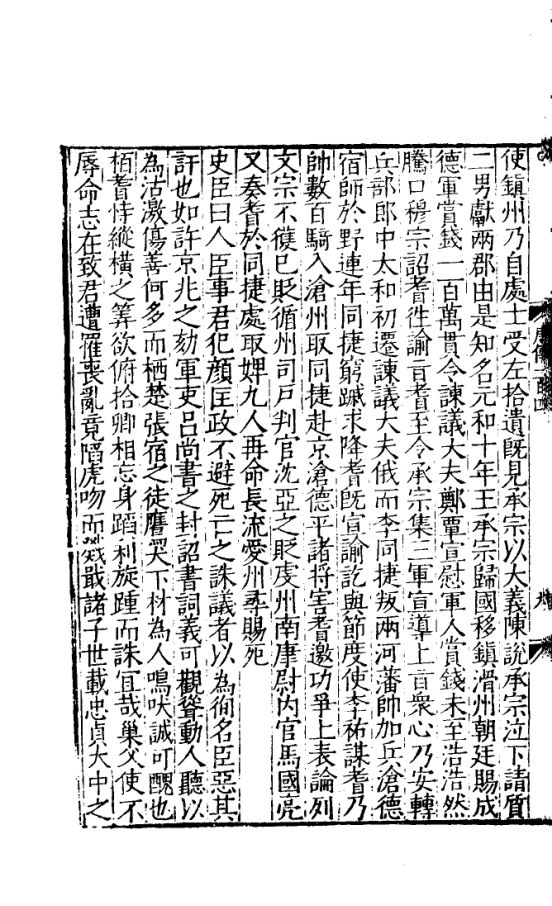 使鎮州乃自處士受左拾遺旣見承宗以大義陳說承宗泣下請質
二男獻兩郡由是知名元和十年王承宗歸國移鎮滑州朝廷賜成
德軍賞錢一百萬貫令諫議大夫鄭覃宣慰軍人賞錢未至浩浩然
騰口穆宗詔耆徃諭旨耆至令承宗集三軍宣導上旨衆心乃安轉
兵部郎中太和初遷諫議大夫俄而李同捷叛兩河藩帥加兵滄德
宿師於野連年同捷窮蹴求降耆旣宣諭訖與節度使李祐謀耆乃
帥數百騎入滄州取同捷赴京滄德平諸將害耆邀功爭上表論列
文宗不獲已貶循州司戶判官沈亞之貶虔州南康尉內官馬國亮
又奏耆於同捷處取婢九人再命長流愛州尋賜死
史臣曰人臣事君犯顔匡政不避死亡之誅議者以為徇名臣惡其
訐也如許京兆之劾軍吏呂尚書之封詔書詞義可觀聳動人聽以
為沽激傷善何多而栖楚張宿之徒鷹犬下材為人鳴吠誠可醜也
栢耆恃縱橫之筭欲俯拾卿相忘身蹈利旋踵而誅宜哉巢父使不
辱命志在致君遭罹喪亂竟陷虎吻而戣戢諸子世載忠貞大中之